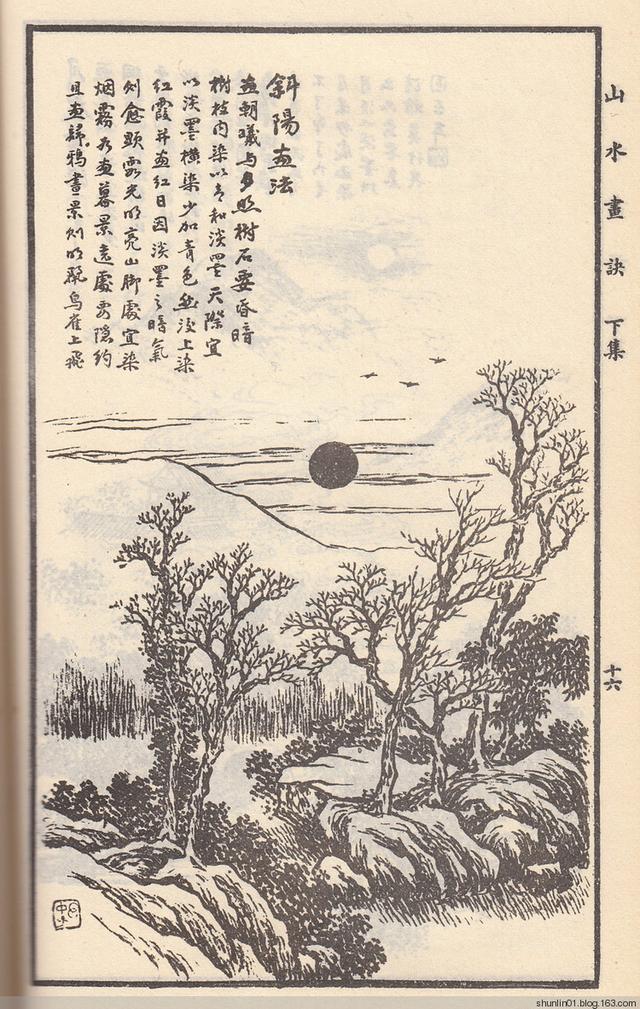 山水畫訣 下集
十六
斜陽画法
画朝曦与夕照樹石要昏暗
樹枝内染以青和淡墨天際宜
以淡墨橫染少加青色然後上染
紅霞并画紅日因淡墨之暗氣
則愈顯霞光明亮山脚處宜染
烟霧為画暮景遠處要隐約
且画歸鴉晝景則明飛鳥雀上飛
shunlin01.blog.163.com